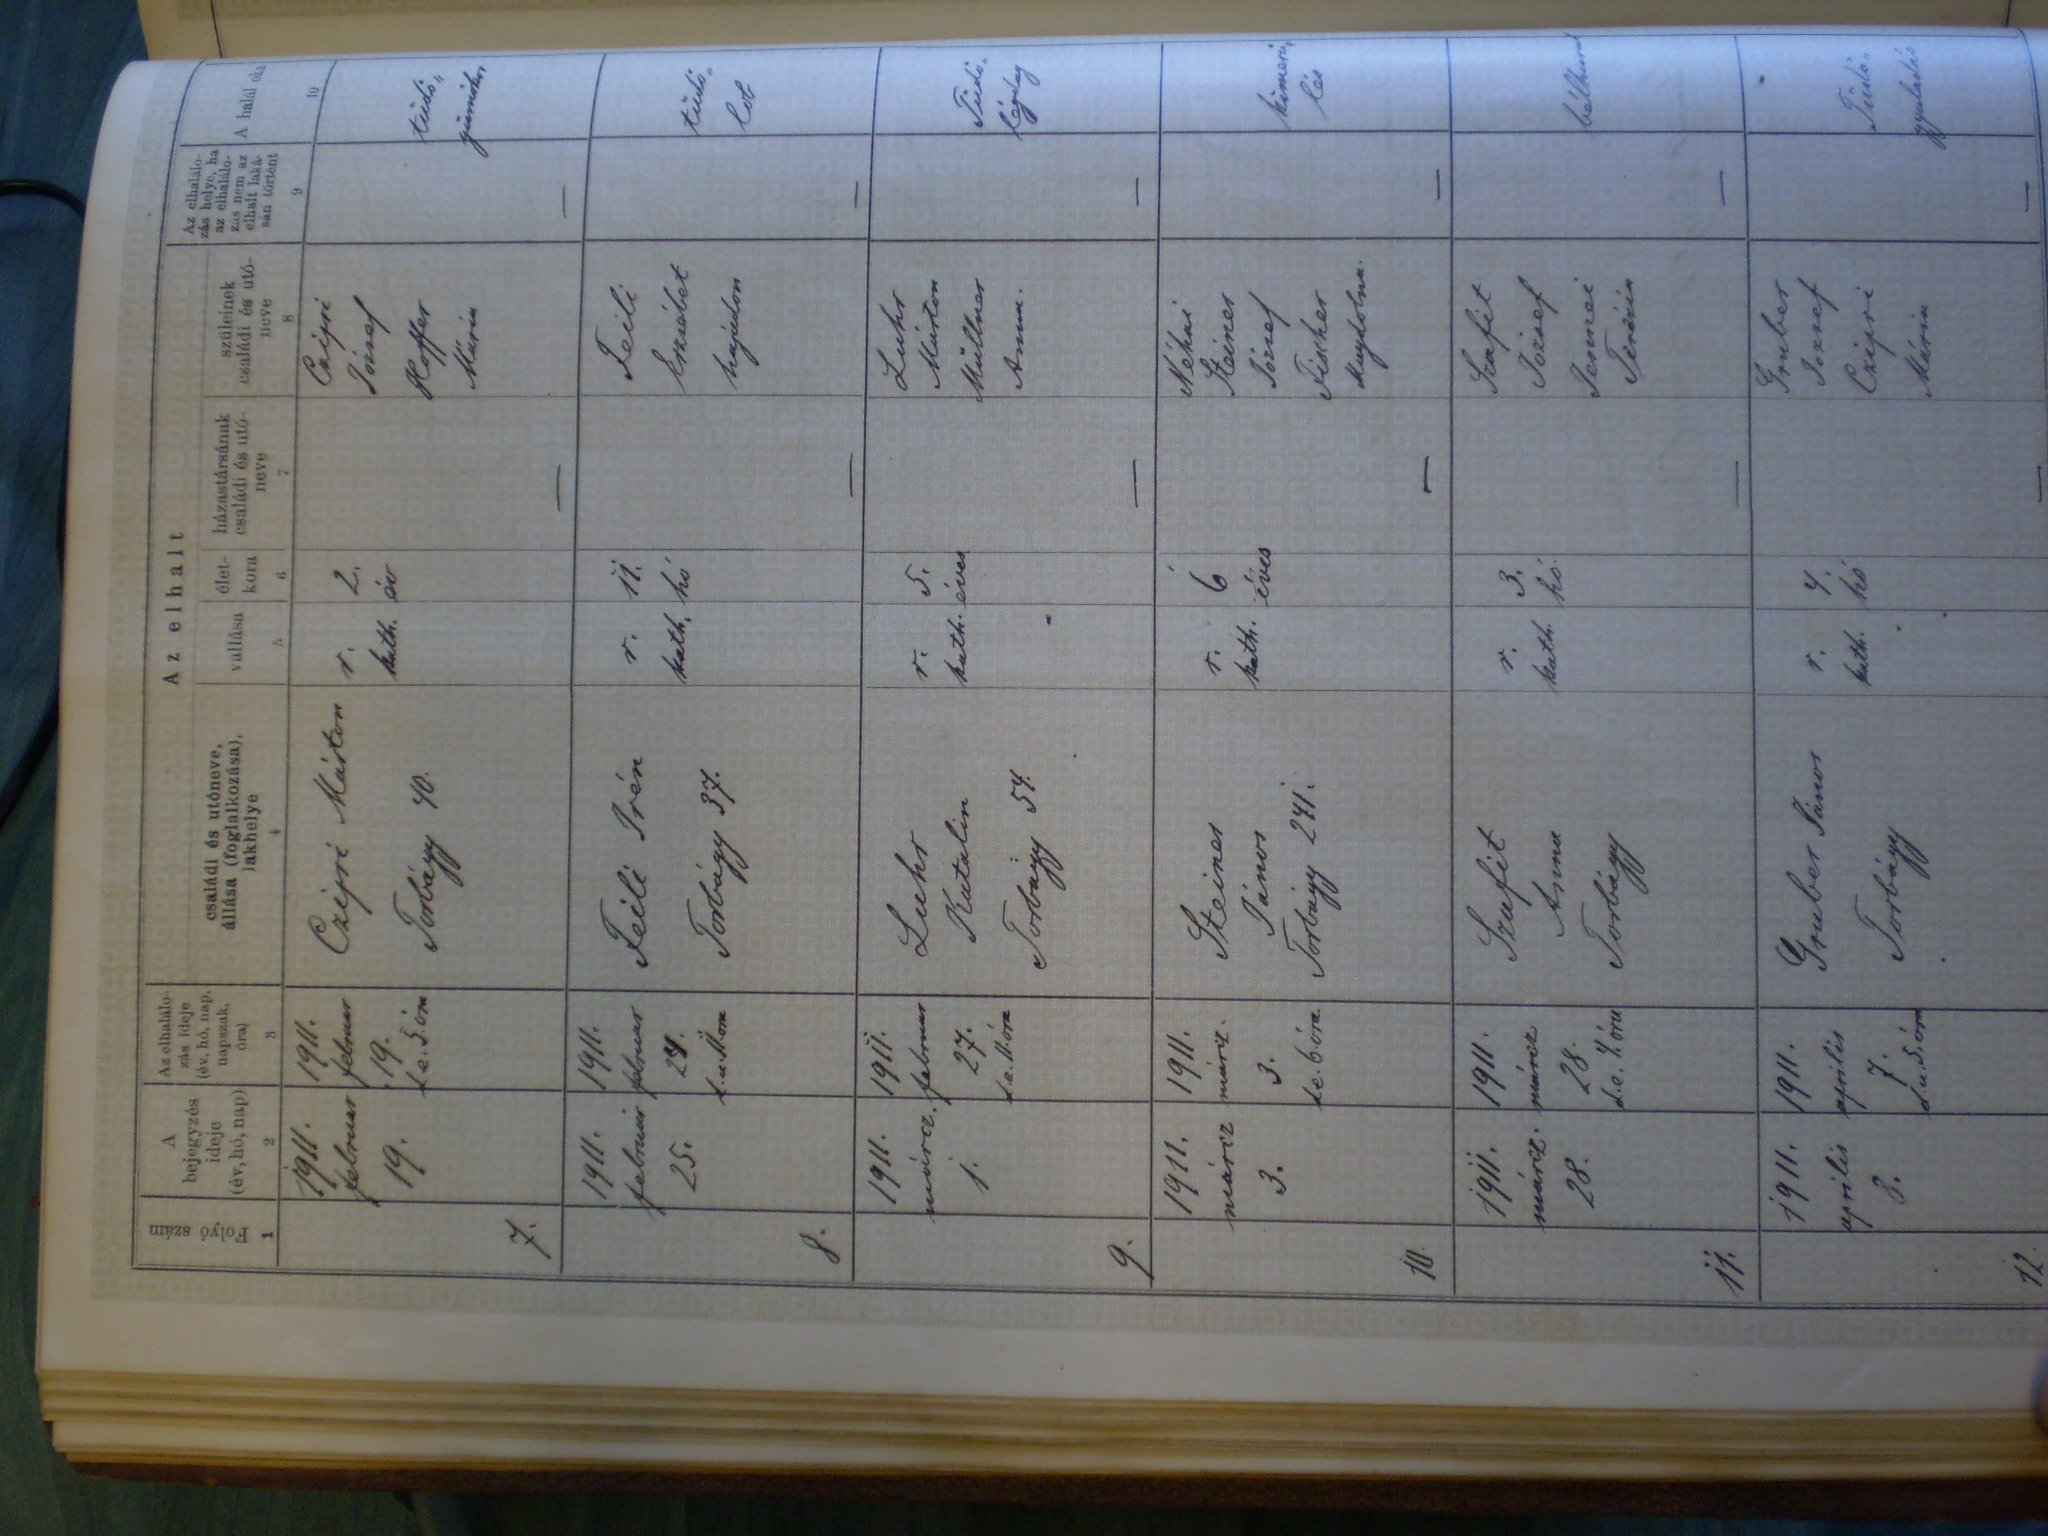 Az elhalt
Folyó szám
1
A
bejegyzés
ideje
(év, hó, nap)
2
Az elhalálo-
zás ideje
(év, hó, nap,
napszak,
óra)
3
családi és utóneve,
állása (foglalkozása),
lakhelye
4
vallása
5
élet-
kora
6
házastársának
családi és utó-
neve
7
szüleinek
családi és utó-
neve
8
Az elhalálo-
zás helye, ha
az elhalálo-
zás nem az
elhalt laká-
sán történt
9
A halál oka
10
7.
1911.
február
19.
1911.
február
19.
d.e. 5. óra
Czipri Márton
Torbágy 40.
r.
kath.
2.
év
—
Czipri
József
Hoffer
Mária
—
tüdő„
gümőkór
8.
1911.
február
25.
1911.
február
24.
d.u. 11 óra
Feili Irén
Torbágy 37.
r.
kath.
11.
hó
—
Feili
Erzsébet
hajadon
—
tüdő„
lob
9.
1911.
márcz.
1.
1911.
február
27.
d.e. 11. óra
Luhr
Katalin
Torbágy 54.
r.
kath.
5.
éves
—
Luhr
Márton
Müllner
Anna.
—
Tüdő„
légdag
10.
1911.
márcz
3.
1911.
márcz.
3.
d.e. 6 óra.
Steiner
János
Torbágy 241.
r.
kath.
6
éves
—
Néhai
Steiner
József
Fischer
Magdolna.
—
kimerü„
lés
11.
1911.
márcz.
28.
1911.
márcz
28.
d.e. 4. óra
Szafit
Anna
Torbágy
r.
kath.
3.
hó.
—
Szafit
József
Terézia
—
bélhurut
12.
1911.
április
8.
1911.
április
7.
d.u. 5. óra
Gruber János
Torbágy
r.
kath.
4.
hó
—
Gruber
József
Czipri
Mária
—
Tüdő„
gyuladás